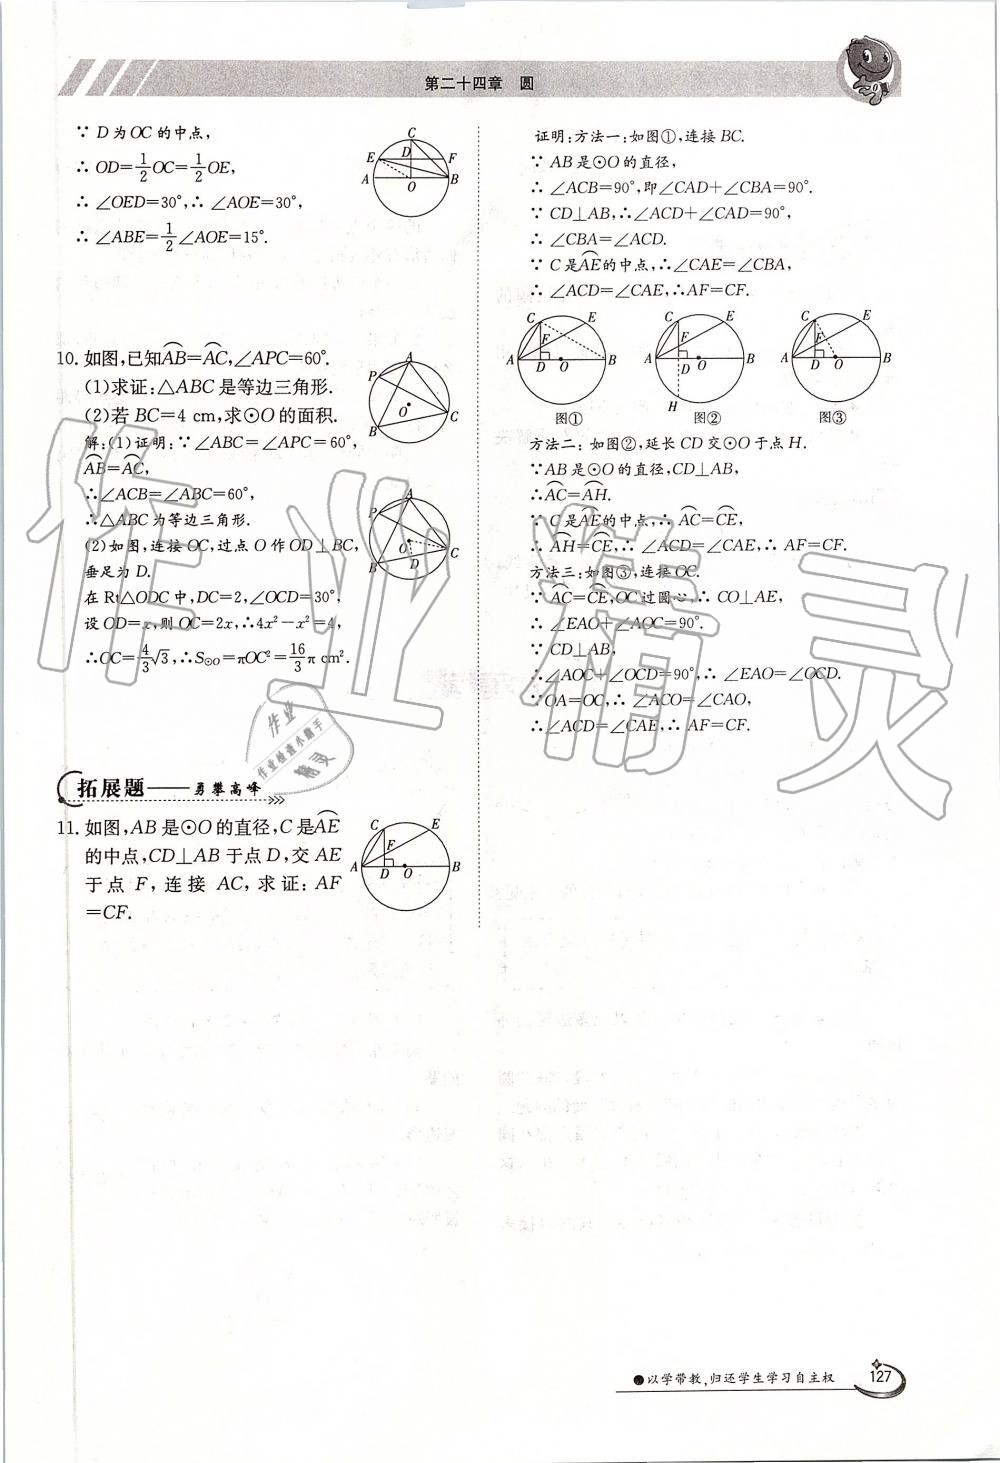 第二十四章 圆
∵ D为OC的中点,
∴ OD=1/2OC=1/2OE,
∴ ∠OED=30°,∴ ∠AOE=30°,
∴ ∠ABE=1/2∠AOE=15°.
C
E D F
A O B
10. 如图,已知A͡B=A͡C,∠APC=60°.
(1)求证:△ABC是等边三角形.
(2)若BC=4 cm,求⊙O的面积.
解:(1)证明:∵∠ABC=∠APC=60°,
A͡B=A͡C,
∴∠ACB=∠ABC=60°,
∴△ABC为等边三角形.
(2)如图,连接OC,过点O作OD⊥BC,
垂足为D.
在Rt△ODC中,DC=2,∠OCD=30°,
设OD=x,则OC=2x,∴4x²-x²=4,
∴OC=4/3√3,∴S⊙O=πOC²=16/3π cm².
A
P
O
C
B
A
P
O
C
B D
拓展题——勇攀高峰
11. 如图,AB是⊙O的直径,C是A͡E
的中点,CD⊥AB于点D,交AE
于点F,连接AC,求证:AF
=CF.
C E
F
A D O B
证明:方法一:如图①,连接BC.
∵ AB是⊙O的直径,
∴ ∠ACB=90°,即∠CAD+∠CBA=90°.
∵ CD⊥AB,∴∠ACD+∠CAD=90°,
∴ ∠CBA=∠ACD.
∵ C是A͡E的中点,∴∠CAE=∠CBA,
∴ ∠ACD=∠CAE,∴AF=CF.
C E C E C E
F F F
A D O B A D O B A D O B
H
图① 图② 图③
方法二:如图②,延长CD交⊙O于点H.
∵AB是⊙O的直径,CD⊥AB,
∴A͡C=A͡H.
∵ C是A͡E的中点,∴ A͡C=C͡E,
∴ A͡H=C͡E,∴ ∠ACD=∠CAE,∴ AF=CF.
方法三:如图③,连接OC.
∵ A͡C=C͡E,OC过圆心,∴ CO⊥AE,
∴ ∠EAO+∠AOC=90°.
∵ CD⊥AB,
∴∠AOC+∠OCD=90°,∴ ∠EAO=∠OCD.
∵OA=OC,∴ ∠ACO=∠CAO,
∴∠ACD=∠CAE,∴ AF=CF.
作业精灵
作业
作业检查小助手
精灵
●以学带教,归还学生学习自主权
127